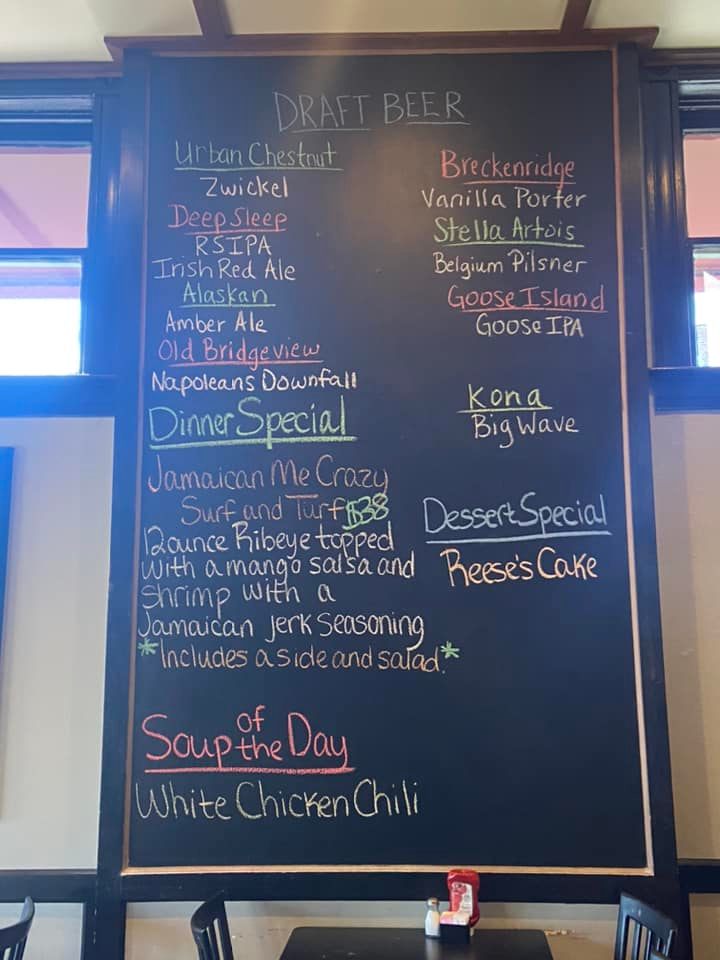 DRAFT BEER
Urban Chestnut
Zwickel
Deep Sleep
RSIPA
Irish Red Ale
Alaskan
Amber Ale
Old Bridgeview
Napoleans Downfall
Breckenridge
Vanilla Porter
Stella Artois
Belgium Pilsner
Goose Island
Goose IPA
Kona
Big Wave
Dinner Special
Jamaican Me Crazy
Surf and Turf $38
12 ounce Ribeye topped
with a mango salsa and
shrimp with a
Jamaican jerk seasoning
*Includes a side and salad.*
Dessert Special
Reese's Cake
Soup of the Day
White Chicken Chili